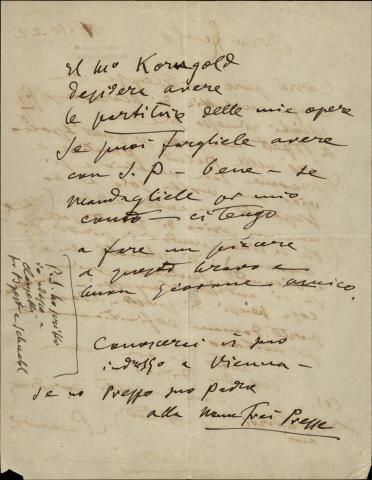 El Mo Korngold
desidera avere
le partiture delle mie opere
se puoi fargliele avere
con S.P. – bene – se
mandagliele per mio
conto – ci tengo
a fare un piacere
a questo bravo e
buon giovane amico.
Conoscerai il suo
indirizzo a Vienna –
se no Presso suo padre
alla Neue Frei Presse
P.S. ho scritto
io stesso a